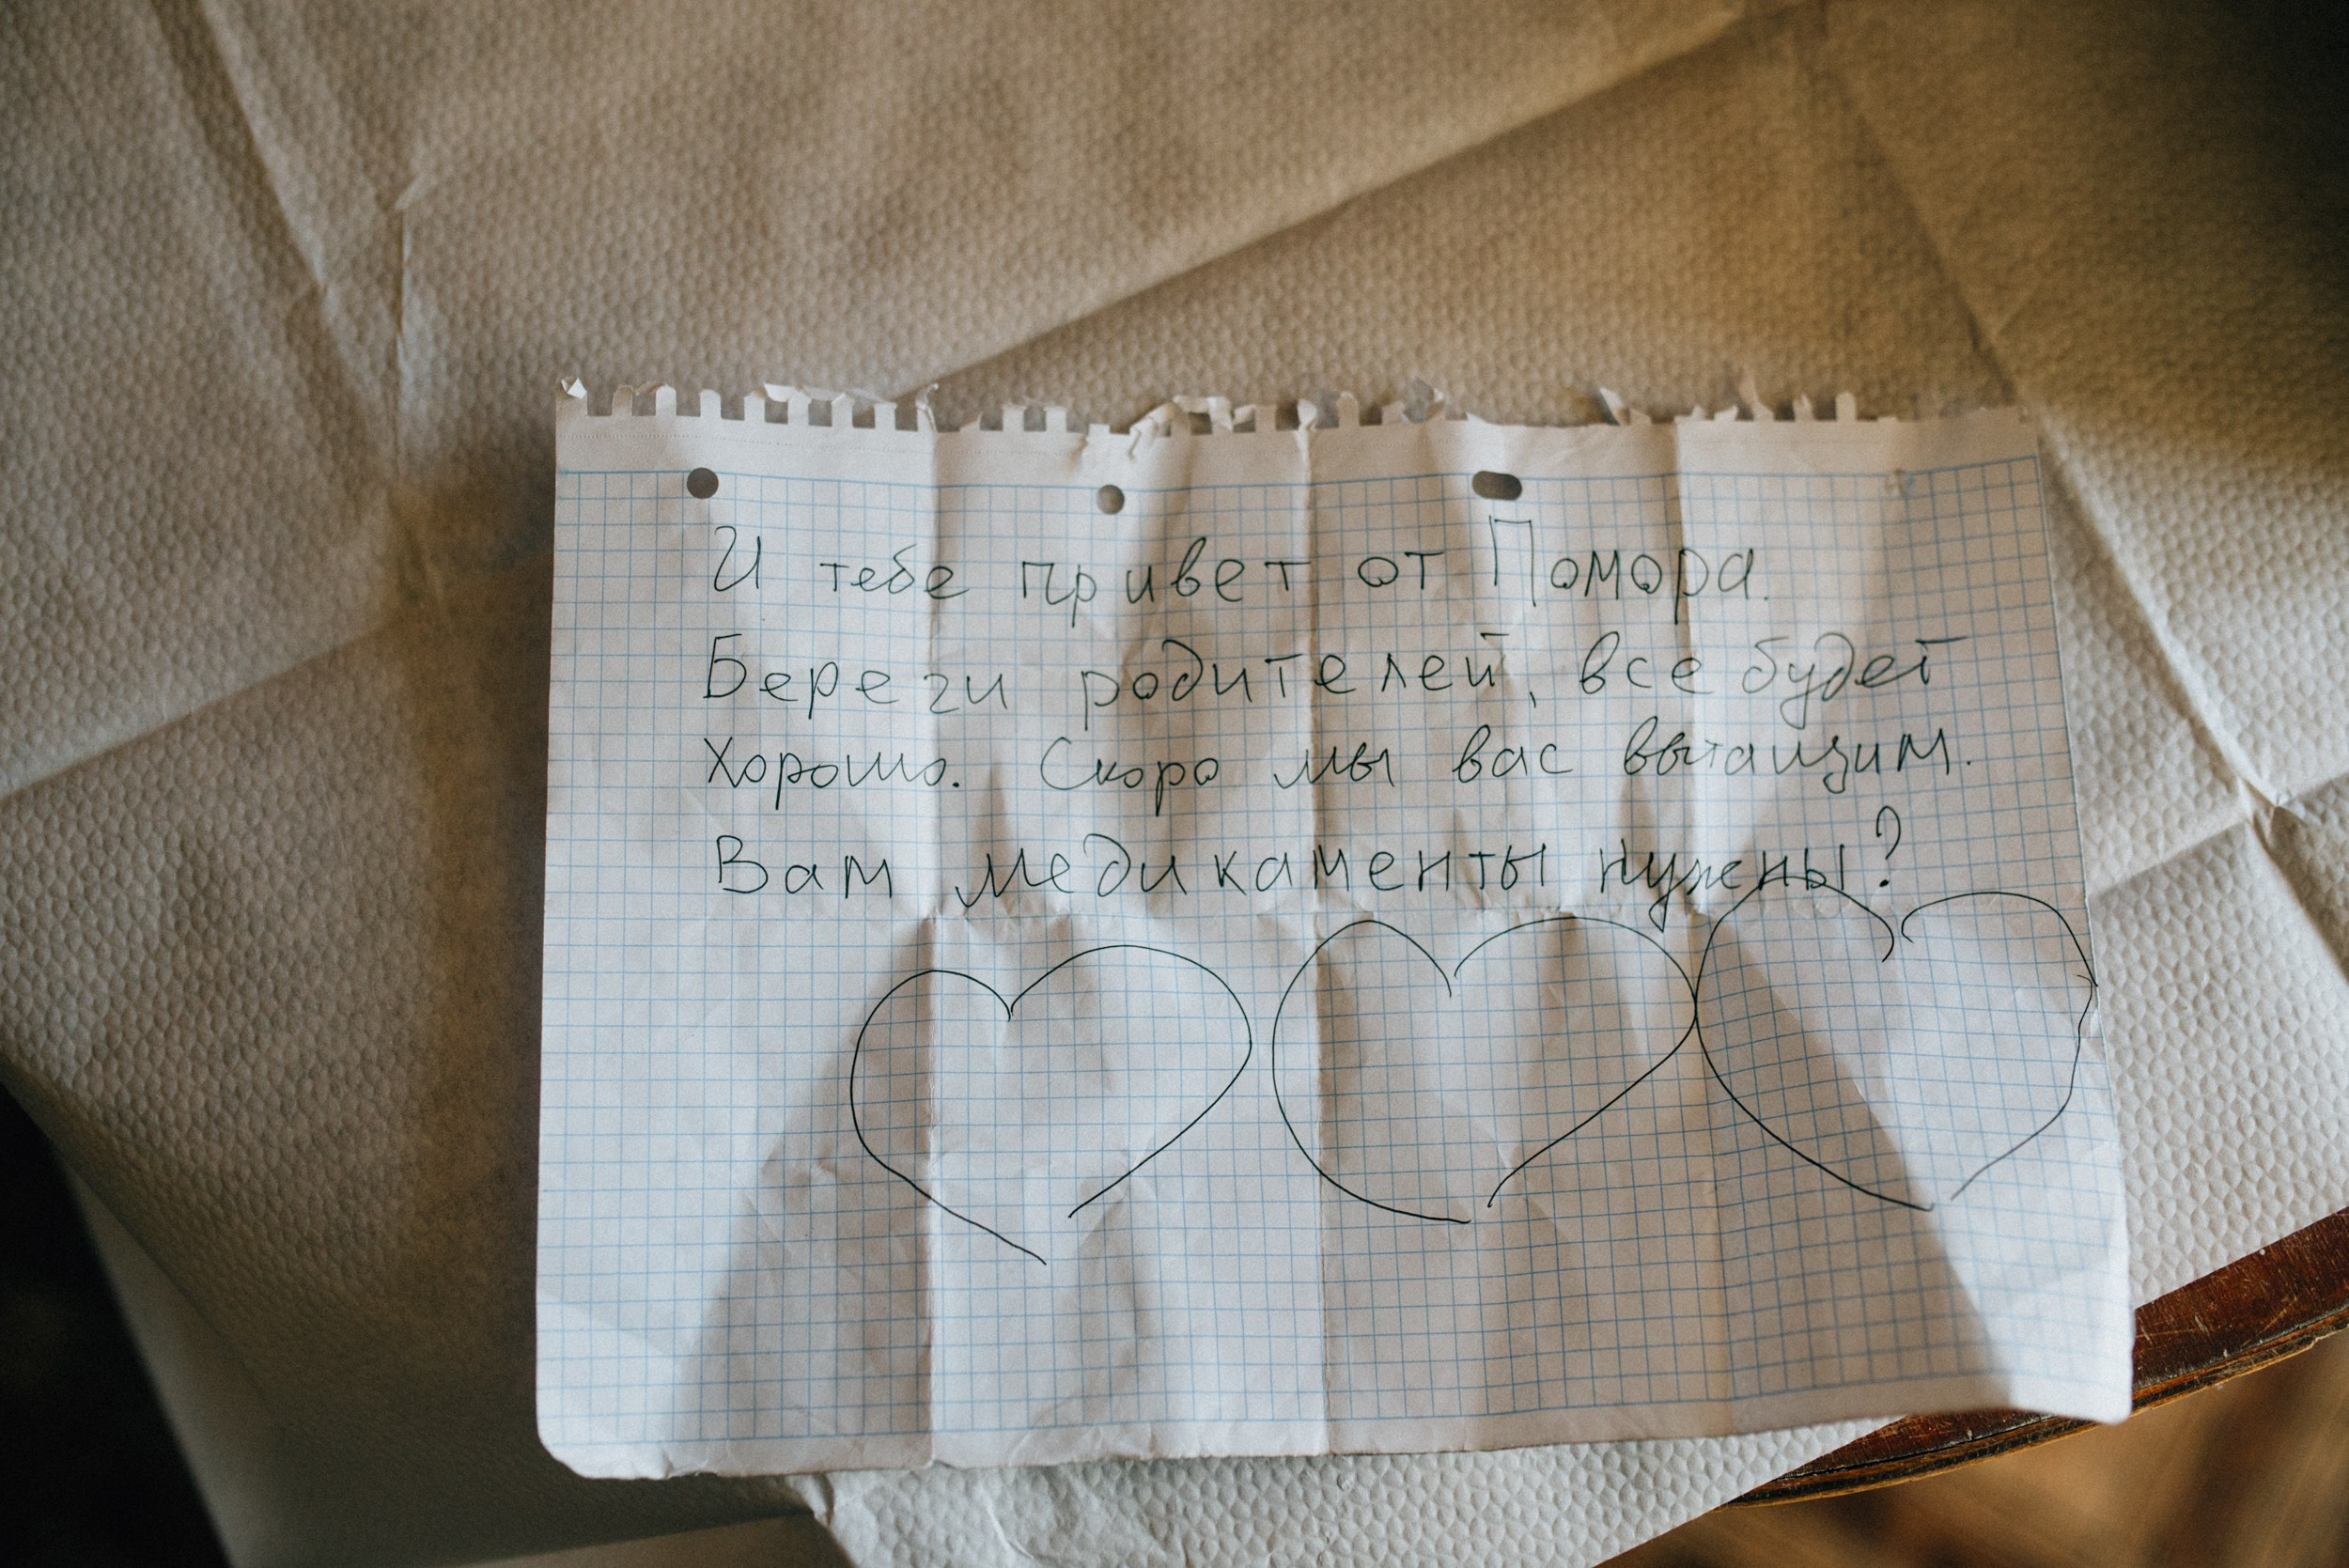 И тебе привет от Помора.
Береги родителей, все будет
Хорошо. Скоро мы вас вытащим.
Вам медикаменты нужны?